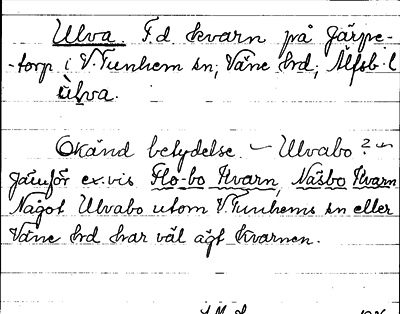 Ulva. F.d kvarn på Järpe-
-torp i V.Tunhem sn, Väne hd, Älfsb. l
ùlva.
Okänd betydelse. - Ulvabo? -
Jämför ex.vis Flo-bo Kvarn, Näsbo Kvarn
Något Ulvabo utom V.Tunhems sn eller
Väne hd har väl ägt kvarnen.